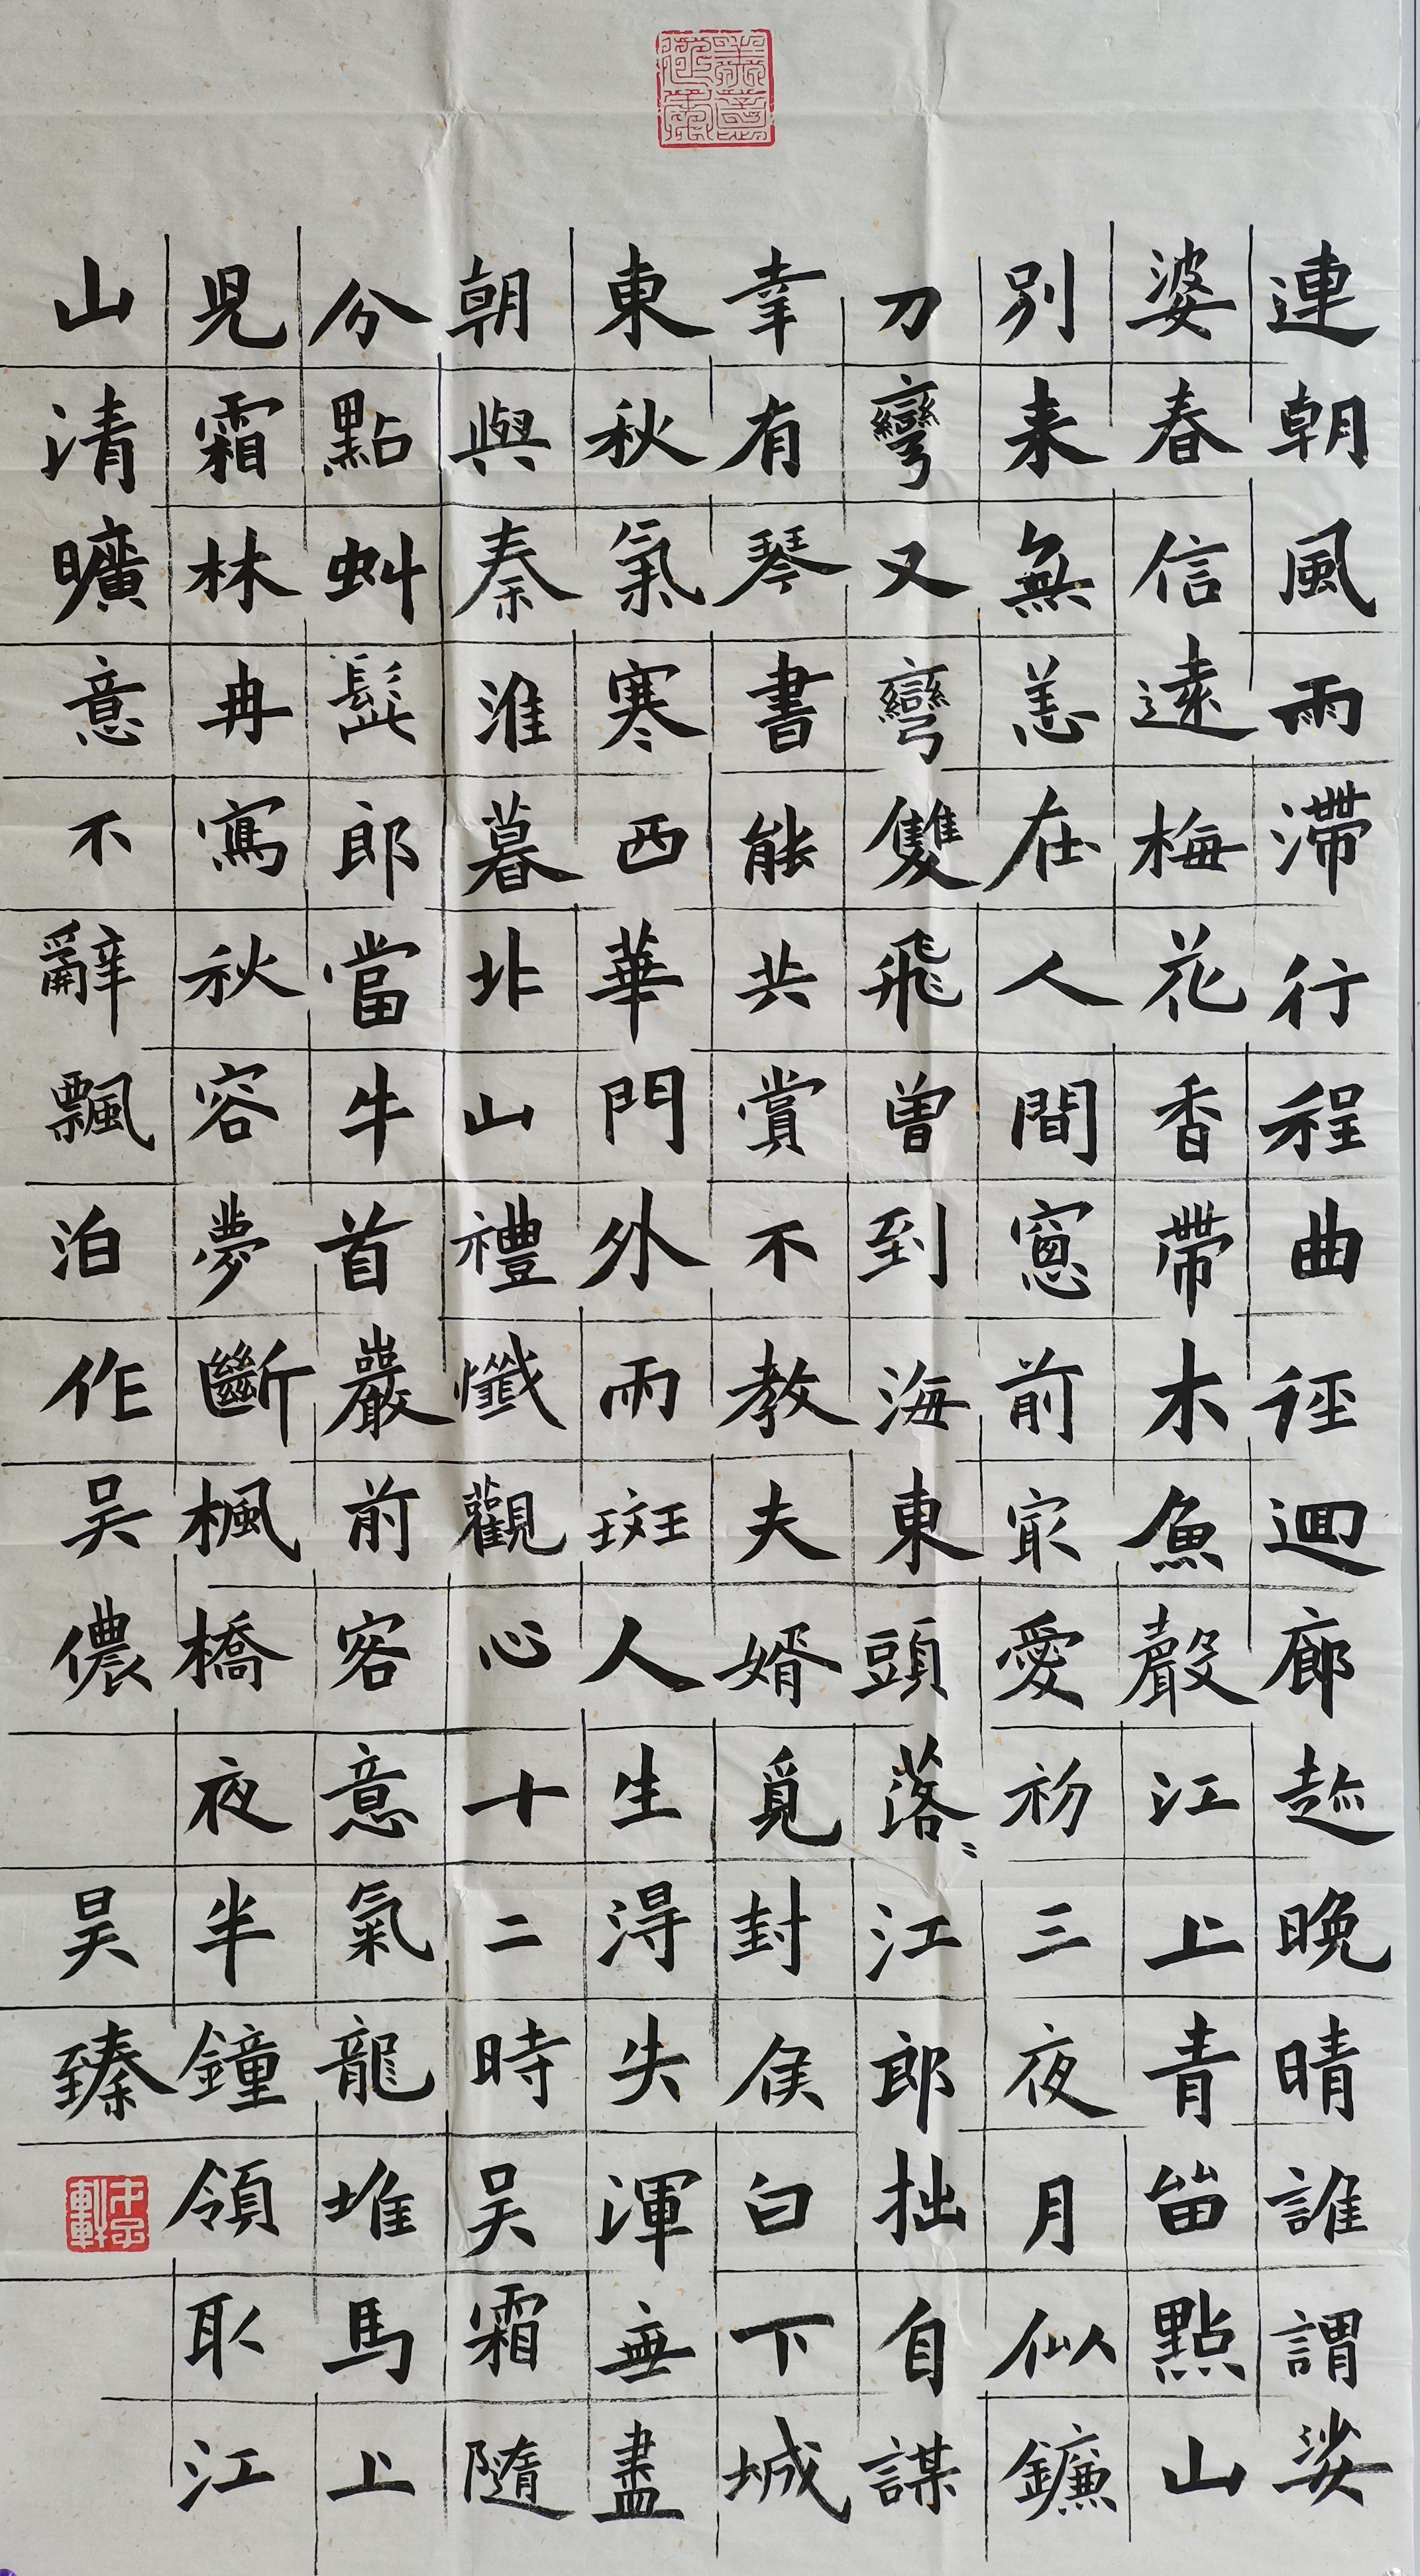 連朝風雨滯行程曲徑迴廊趂晚晴誰謂娑
婆春信遠梅花香帶木魚聲江上青峀點山
別来無恙在人間窻前冣愛初三夜月似鐮
刀彎又彎雙飛曾到海東頭落〻江郎拙自謀
幸有琴書能共賞不教夫婿覓封侯白下城
東秋氣寒西華門外雨斑人生得失渾無盡
朝與秦淮暮北山禮懺觀心十二時吴霜隨
分點虯髭郎當牛首巖前客意氣龍堆馬上
見霜林冉寫秋容夢斷楓橋夜半鐘領取江
山清曠意不辭飄泊作吴儂
昊臻